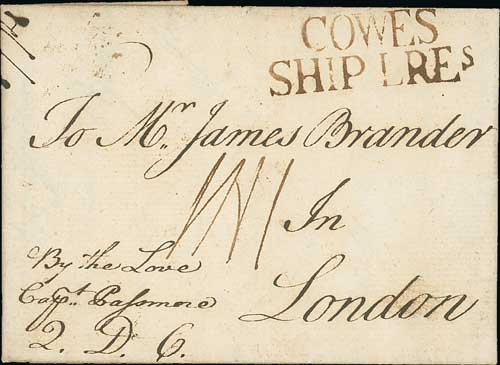 COWES
SHIP LREs
To Mr. James Brander
In
London
By the Love
Capt. Passmore
2. D. C.